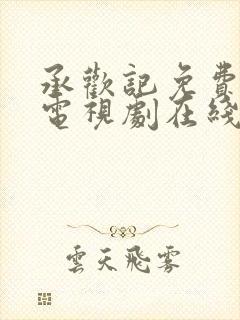 承歡記免費
電視劇在綫
雲天飛霧